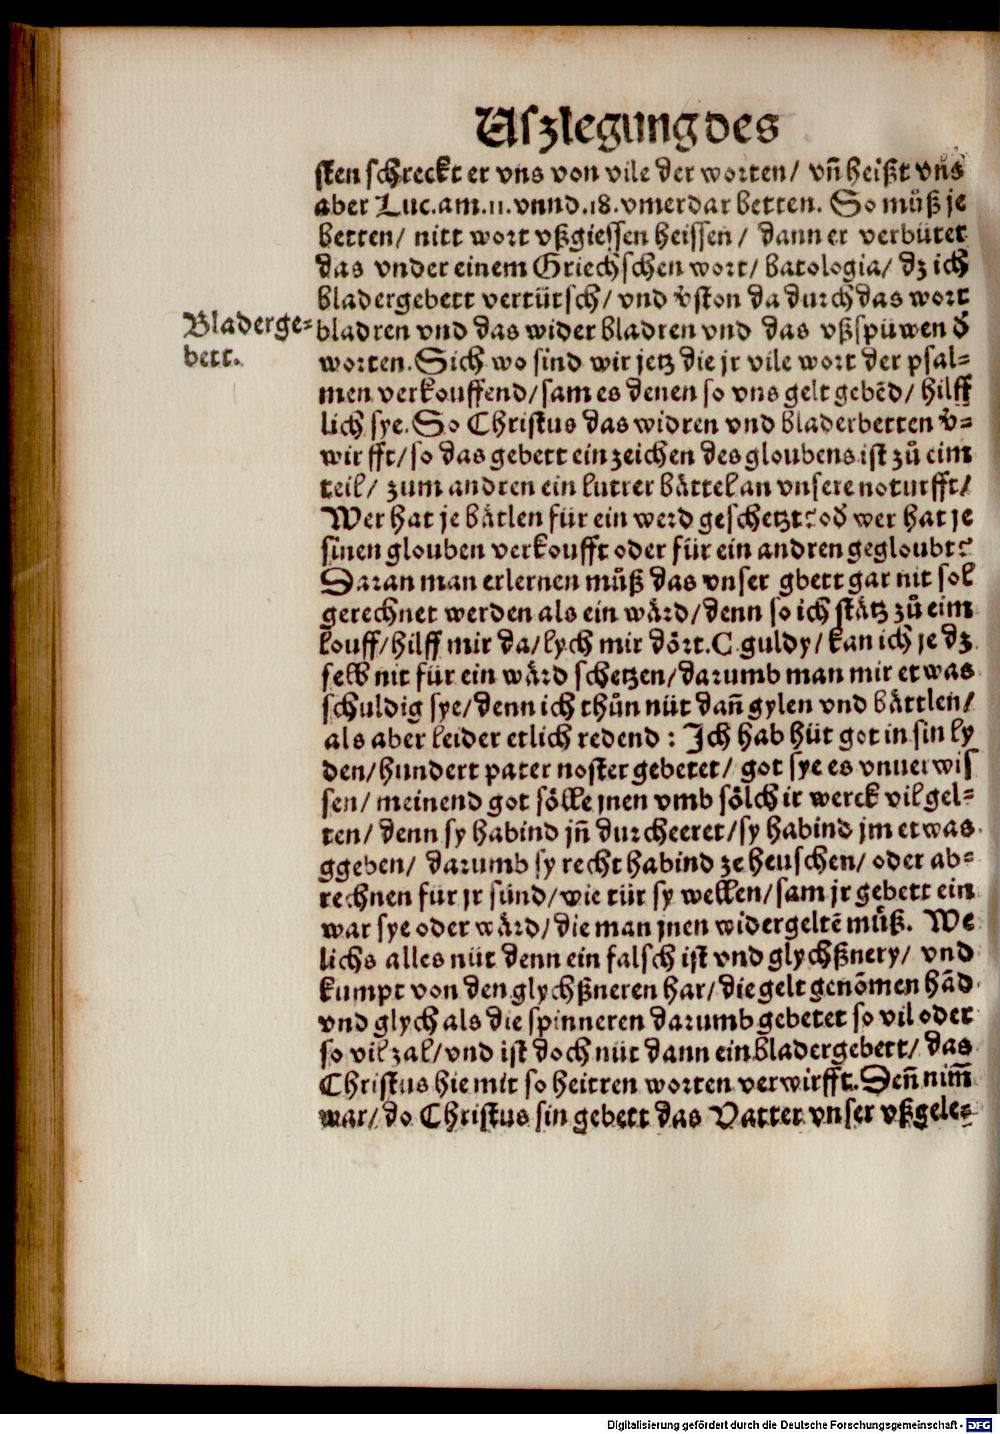 Uſzlegung des
ſten ſchreckt er vns von vile der worten/ vñ heißt vns
aber Luc. am. 11. vnnd. 18. vmerdar betten. So muͤß je
betten/ nitt wort vßgieſſen heiſſen/ dann er verbütet
das vnder einem Griechſchen wort/ batologia/ dz ich
bladergebett vertütſch/ vnd v̊ſton da durch das wort
Bladerge⸗
bett.
bladren vnd das wider bladren vnd das vßſpüwen d̕
worten. Sich wo ſind wir jetz die jr vile wort der pſal⸗
men verkouffend/ ſam es denen ſo vns gelt gebēd/ hilff
lich ſye. So Chriſtus das widren vnd bladerbetten v̊⸗
wirfft/ ſo das gebett ein zeichen des gloubens iſt zů eim
teil/ zum andren ein lutrer bättel an vnſere noturfft/
Wer hat je bätlen für ein werd geſchetzt? od̕ wer hat je
ſinen glouben verkoufft oder für ein andren gegloubt?
Daran man erlernen muͤß das vnſer gbett gar nit ſol
gerechnet werden als ein wärd/ denn ſo ich ſtätz zů eim
louff/ hilff mir da/ lych mir dört. C. guldy/ kan ich je dz
ſelb nit für ein wärd ſchetzen/ darumb man mir etwas
ſchuldig ſye/ denn ich thůn nüt dañ gylen vnd bättlen/
als aber leider etlich redend : Ich hab hüt got in ſin ly
den/ hundert pater noſter gebetet/ got ſye es vnuerwiſ
ſen/ meinend got ſölle jnen vmb ſölch ir werck vil gel⸗
ten/ denn ſy habind jñ durcheeret/ ſy habind jm etwas
ggeben/ darumb ſy recht habind ze heuſchen/ oder ab⸗
rechnen für jr ſünd/ wie tür ſy wellen/ ſam jr gebett ein
war ſye oder wärd/ die man jnen widergeltē muͤß. We
lichs alles nüt denn ein falſch iſt vnd glychßnery/ vnd
kumpt von den glychßneren har/ die gelt genōmen hād
vnd glych als die ſpinneren darumb gebetet ſo vil oder
ſo vil zal/ vnd iſt doch nüt dann ein bladergebett/ das
Chriſtus hie mit ſo heitren worten verwirfft. Deñ nim̄
war/ do Chriſtus ſin gebett das Vatter vnſer vßgele⸗
Digitalisierung gefördert durch die Deutsche Forschungsgemeinschaft - DFG